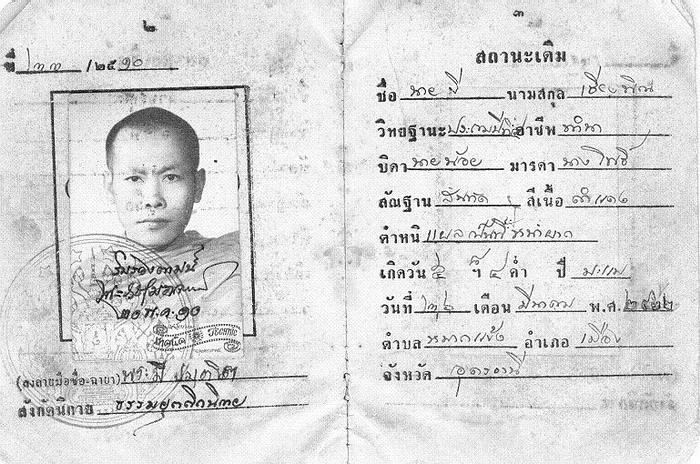 ๒
ที่ ๒๓๓ /๒๕๑๐
รับรองถาวนี้
๒๐ พ.ค. ๑๐
(ลงลายมือชื่อ-ฉายา) พระมี
สังกัดนิกาย ธรรมยุตติกนิกาย
๓
สถานะเดิม
ชื่อ นาย มี นามสกุล
วิทยฐานะ ประถมปีที่ อาชีพ ทำนา
บิดา นายน้อย มารดา นางโพธิ์
สัณฐาน สันทัด สีเนื้อ ดำแดง
ตำหนิ แผลเป็นที่หน้าผาก
เกิดวัน ๕ ฯ ๔ ค่ำ ปี มะแม
วันที่ ๒๖ เดือน มีนาคม พ.ศ.
ตำบล หมากแข้ง อำเภอ เมือง
จังหวัด อุดรธานี